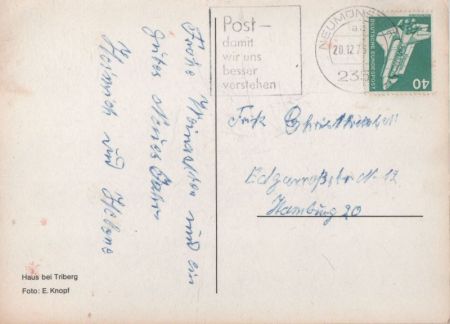 Frohe Weihnachten und ein
gutes Neues Jahr
Heinrich und Helene
Haus bei Triberg
Foto: E. Knopf
Post-
damit
wir uns
besser
verstehen
NEUMÜNS
20.12.75
235
DEUTSCHE BUNDESPOST
40
Fritz
Edgarroßstr. 12
Hamburg 20